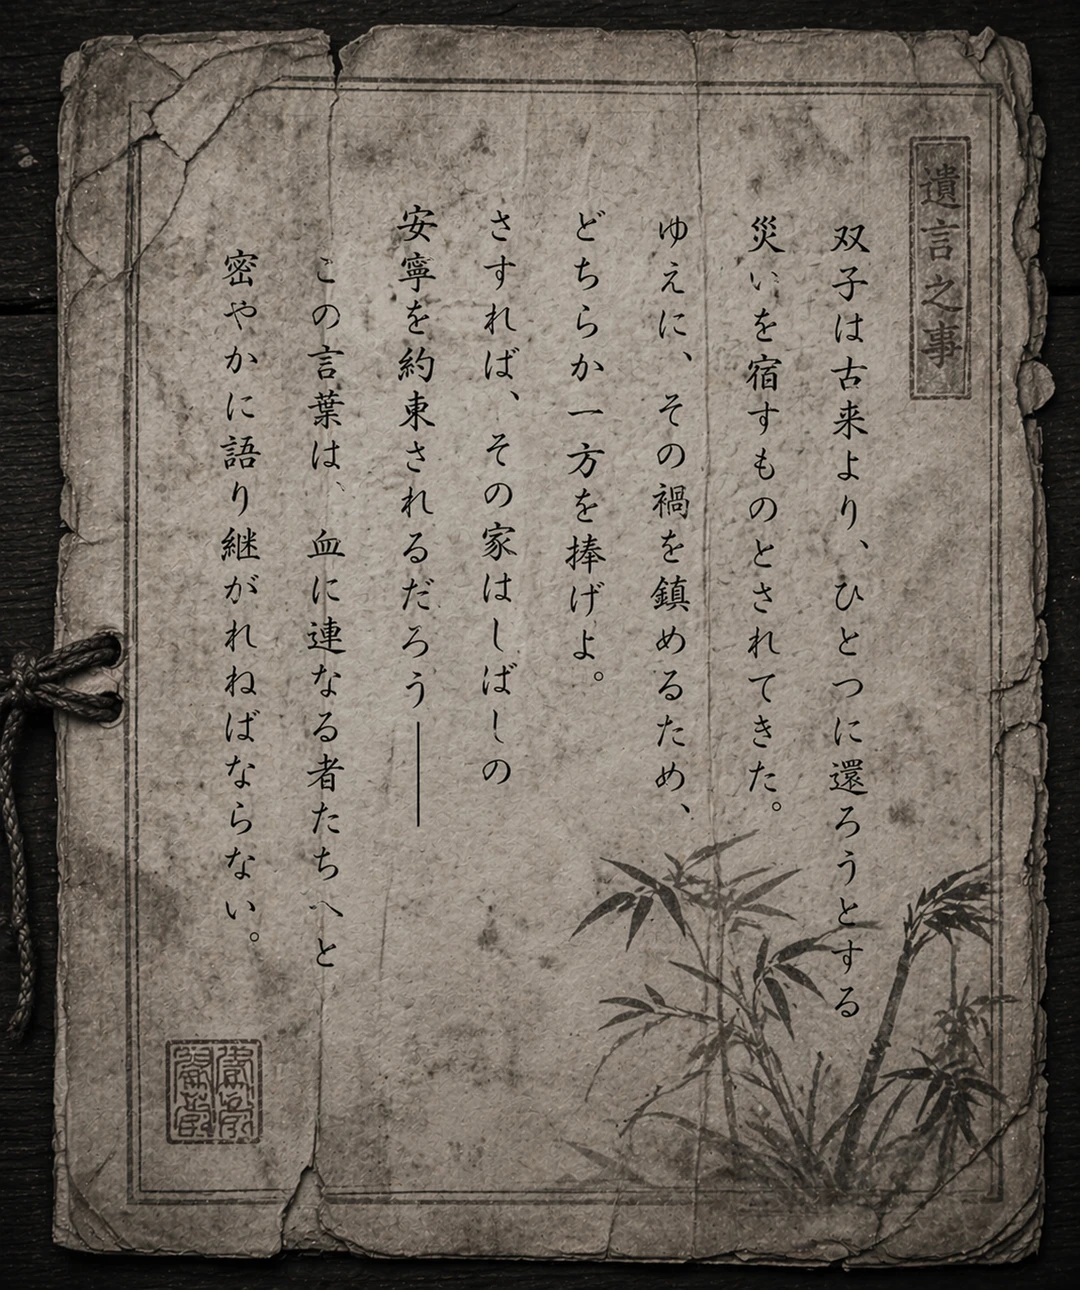 遺言之事
双子は古来より、ひとつに還ろうとする
災いを宿すものとされてきた。
ゆえに、その禍を鎮めるため、
どちらか一方を捧げよ。
さすれば、その家はしばしの
安寧を約束されるだろう――
この言葉は、血に連なる者たちへと
密やかに語り継がれねばならない。